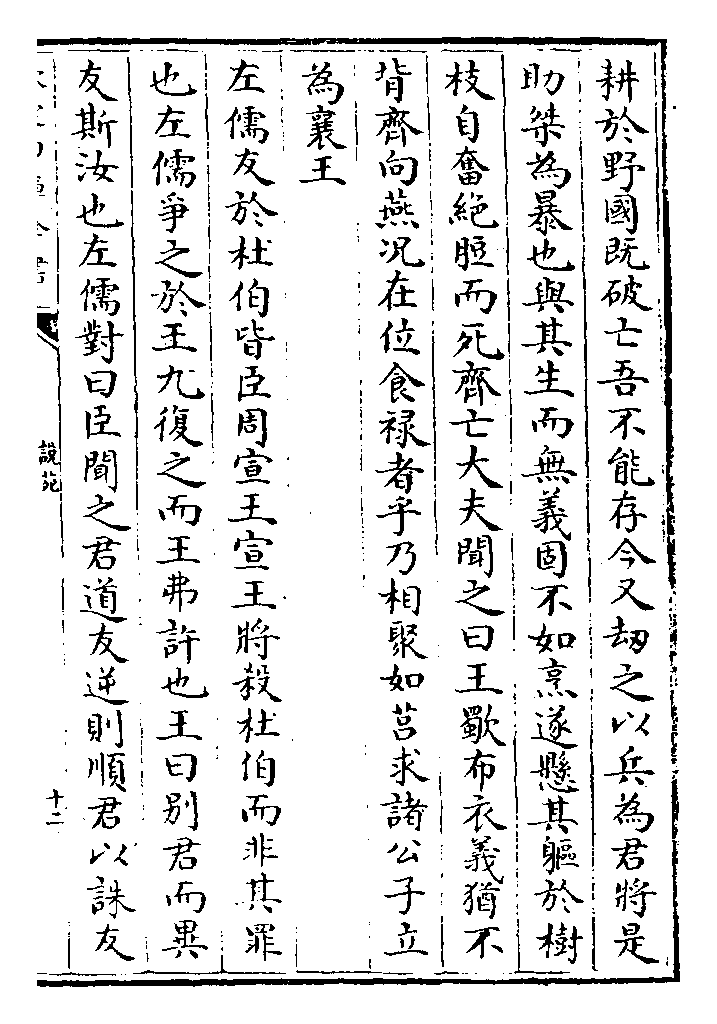 耕於野國既破亡吾不能存今又刼之以兵為君將是
助桀為暴也與其生而無義固不如烹遂懸其軀於樹
枝自奮絶脰而死齊亡大夫聞之曰王歜布衣義猶不
背齊向燕况在位食禄者乎乃相聚如莒求諸公子立
為襄王
左儒友於杜伯皆臣周宣王宣王將殺杜伯而非其罪
也左儒爭之於王九復之而王弗許也王曰别君而異
友斯汝也左儒對曰臣聞之君道友逆則順君以誅友
說苑
十二